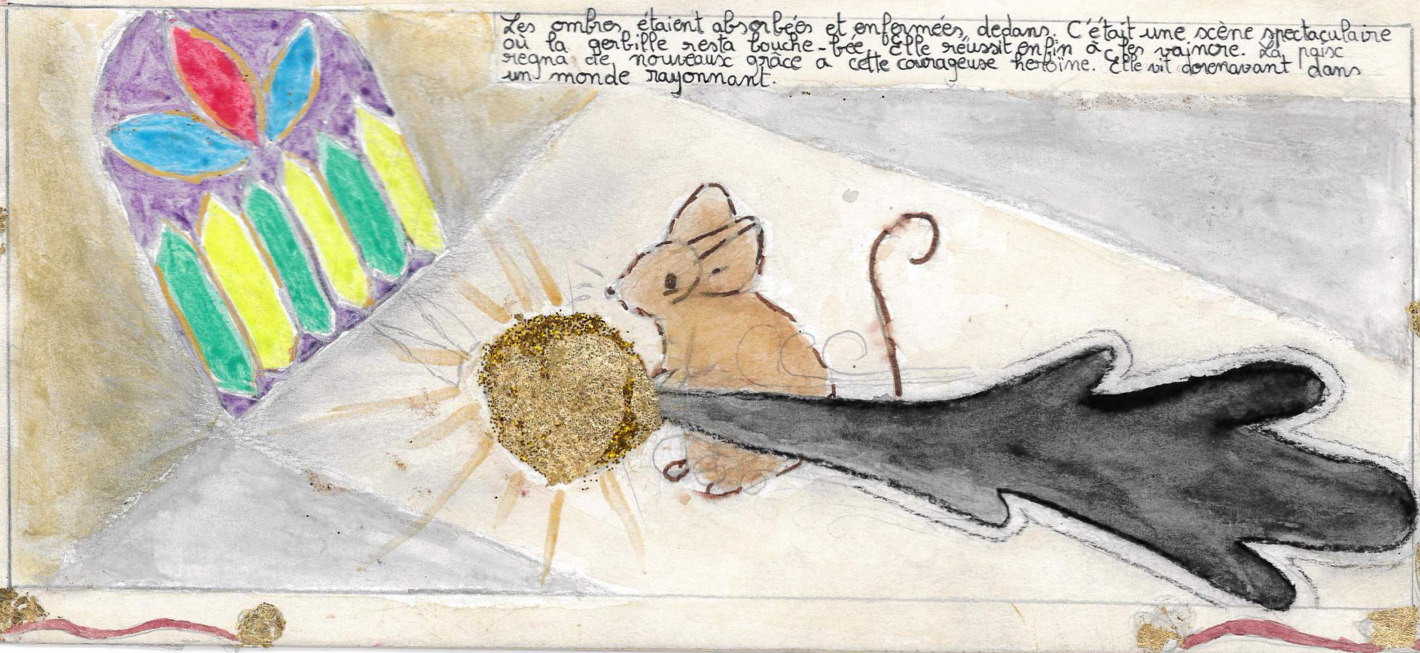 Les ombres étaient absorbées et enfermées dedans. C'était une scène spectaculaire
où la gerbille resta bouche-bée. Elle réussit enfin à les vaincre. La paix
regna de nouveaux grâce a cette courageuse héroïne. Elle vit dorénavant dans
un monde rayonnant.